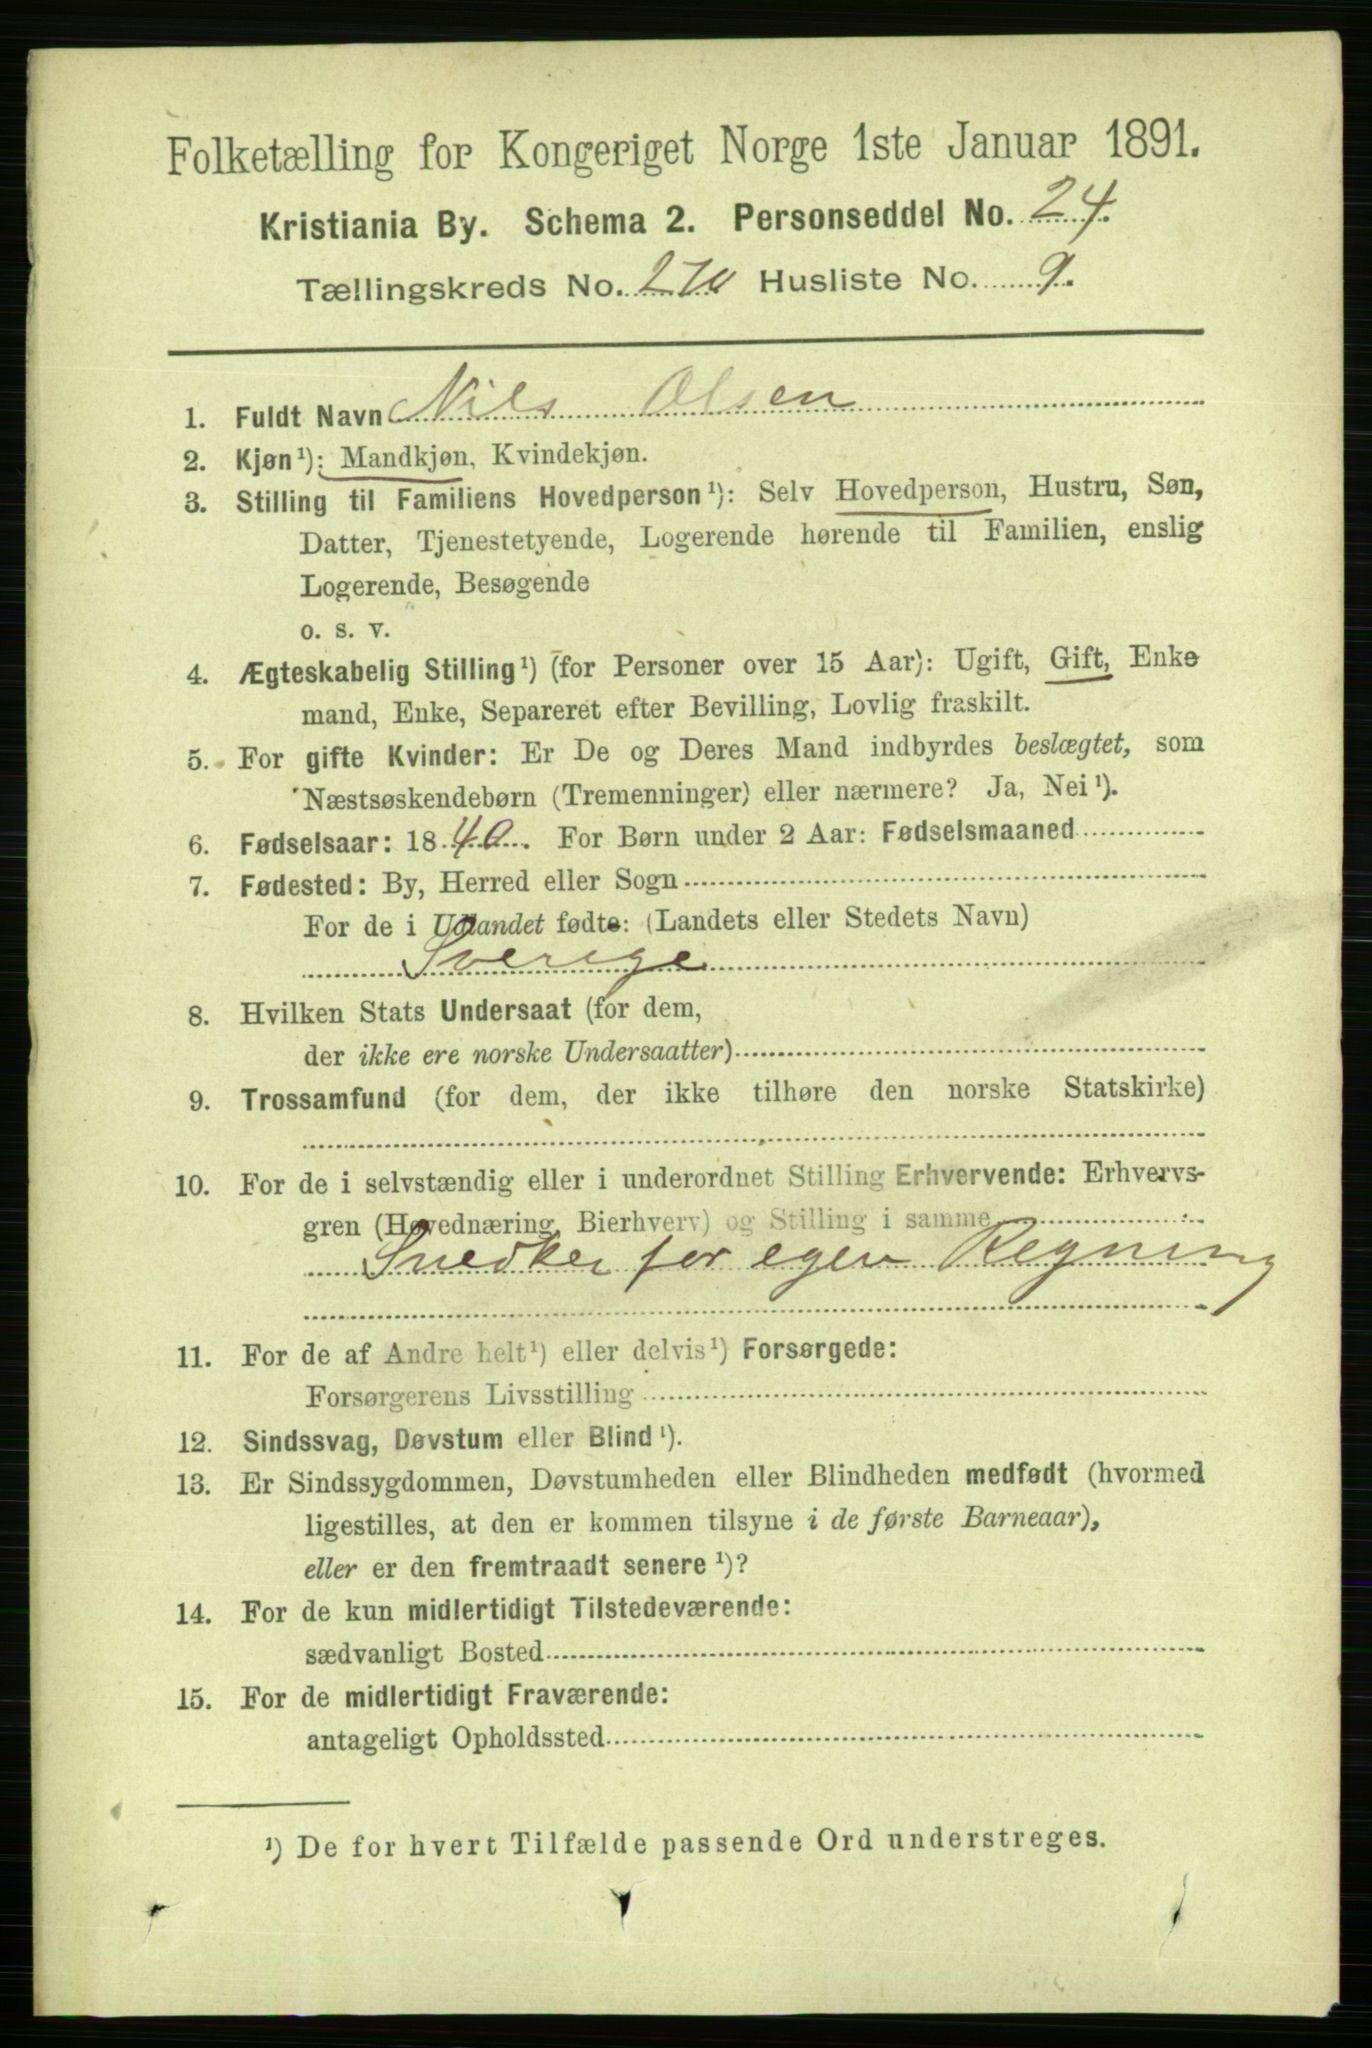 Folketælling for Kongeriget Norge 1ste Januar 1891.
Kristiania By. Schema 2. Personseddel No. 24.
Tællingskreds No. 270 Husliste No. 9.
1. Fuldt Navn Nils Olsen
2. Kjøn¹): Mandkjøn, Kvindekjøn.
3. Stilling til Familiens Hovedperson¹): Selv Hovedperson, Hustru, Søn,
Datter, Tjenestetyende, Logerende hørende til Familien, enslig
Logerende, Besøgende
o. s. v.
4. Ægteskabelig Stilling¹) (for Personer over 15 Aar): Ugift, Gift, Enke
mand, Enke, Separeret efter Bevilling, Lovlig fraskilt.
5. For gifte Kvinder: Er De og Deres Mand indbyrdes beslægtet, som
Næstsøskendebørn (Tremenninger) eller nærmere? Ja, Nei¹).
6. Fødselsaar: 1840. For Børn under 2 Aar: Fødselsmaaned
7. Fødested: By, Herred eller Sogn
For de i Udlandet fødte: (Landets eller Stedets Navn)
Sverige
8. Hvilken Stats Undersaat (for dem,
der ikke ere norske Undersaatter)
9. Trossamfund (for dem, der ikke tilhøre den norske Statskirke)
10. For de i selvstændig eller i underordnet Stilling Erhvervende: Erhvervs-
gren (Hovednæring, Bierhverv) og Stilling i samme
Snedker for egen Regning
11. For de af Andre helt¹) eller delvis¹) Forsørgede:
Forsørgerens Livsstilling
12. Sindssvag, Døvstum eller Blind¹).
13. Er Sindssygdommen, Døvstumheden eller Blindheden medfødt (hvormed
ligestilles, at den er kommen tilsyne i de første Barneaar),
eller er den fremtraadt senere¹)?
14. For de kun midlertidigt Tilstedeværende:
sædvanligt Bosted
15. For de midlertidigt Fraværende:
antageligt Opholdssted
¹) De for hvert Tilfælde passende Ord understreges.